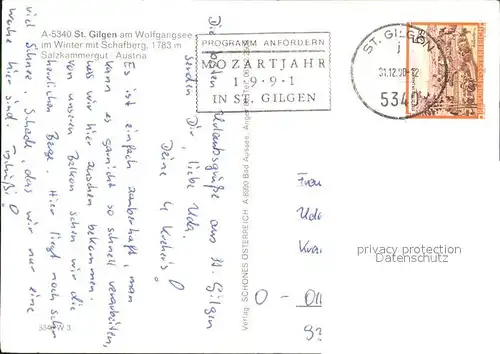 A-5340 St. Gilgen am Wolfgangsee
im Winter mit Schafberg, 1783 m
Salzkammergut - Austria
Die besten Urlaubsgrüße aus St. Gilgen
senden Dir, liebe Uda,
Deine 4
Es ist einfach zauberhaft, man
kann es garnicht so schnell verarbeiten,
was wir hier zusehen bekommen.
Von unseren Balkon sehen wir die
herrlichen Berge. Hier liegt noch sehr
viel Schnee. Schade, das wir nur eine
Woche hier sind. Tschüß!
334 W 3
Verlag SCHÖNES ÖSTERREICH A 8990 Bad Aussee,
PROGRAMM ANFORDERN
MOZARTJAHR
1991
IN ST. GILGEN
ST. GILGEN
j
31.12.90-12
5340
Frau
Uda
O - 
privacy protection
Datenschutz